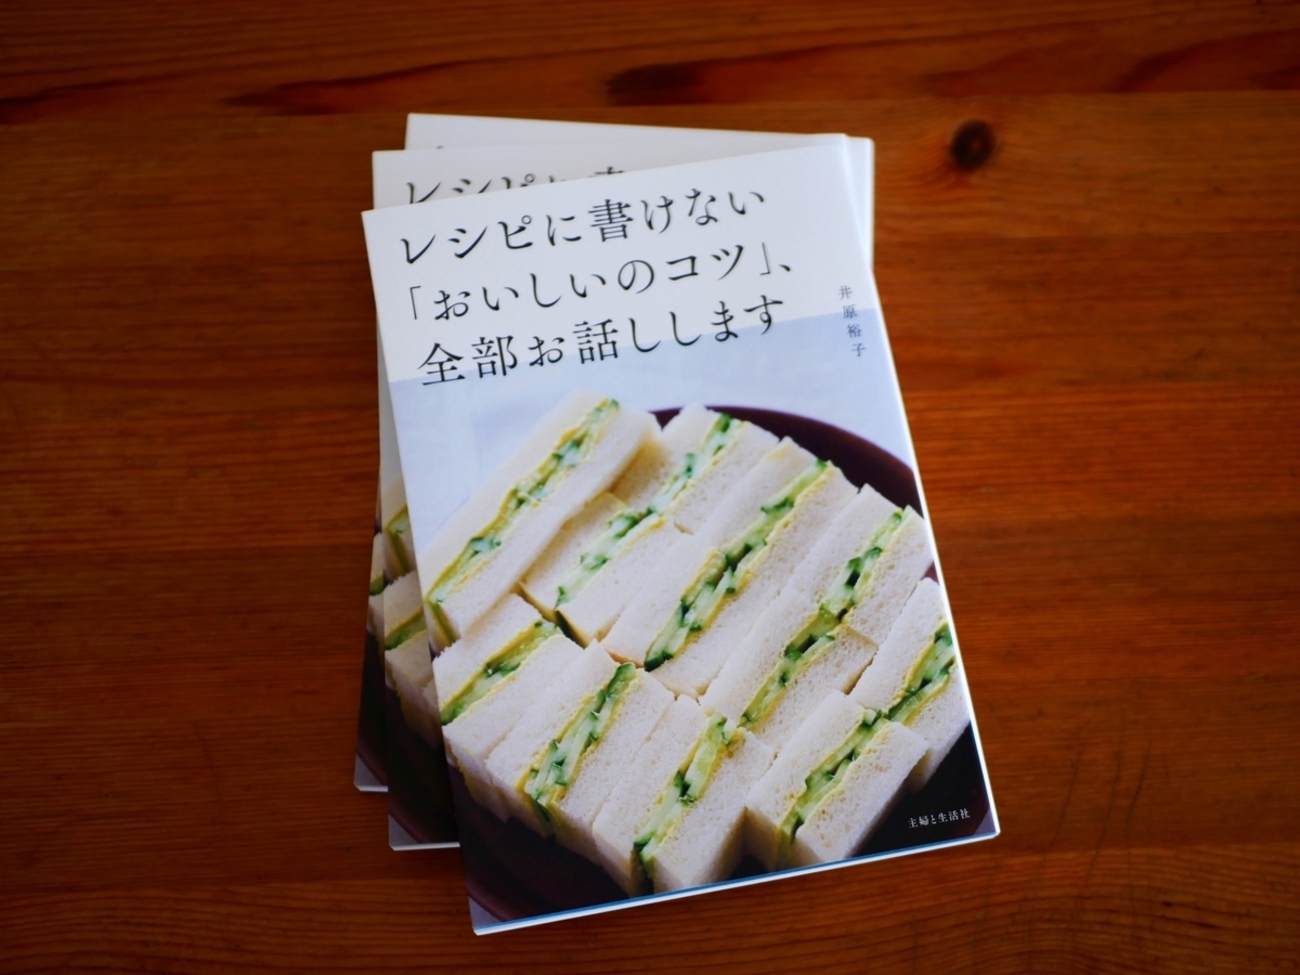 レシピに書けない
「おいしいのコツ」、
全部お話しします
井原裕子
主婦と生活社
レシピ